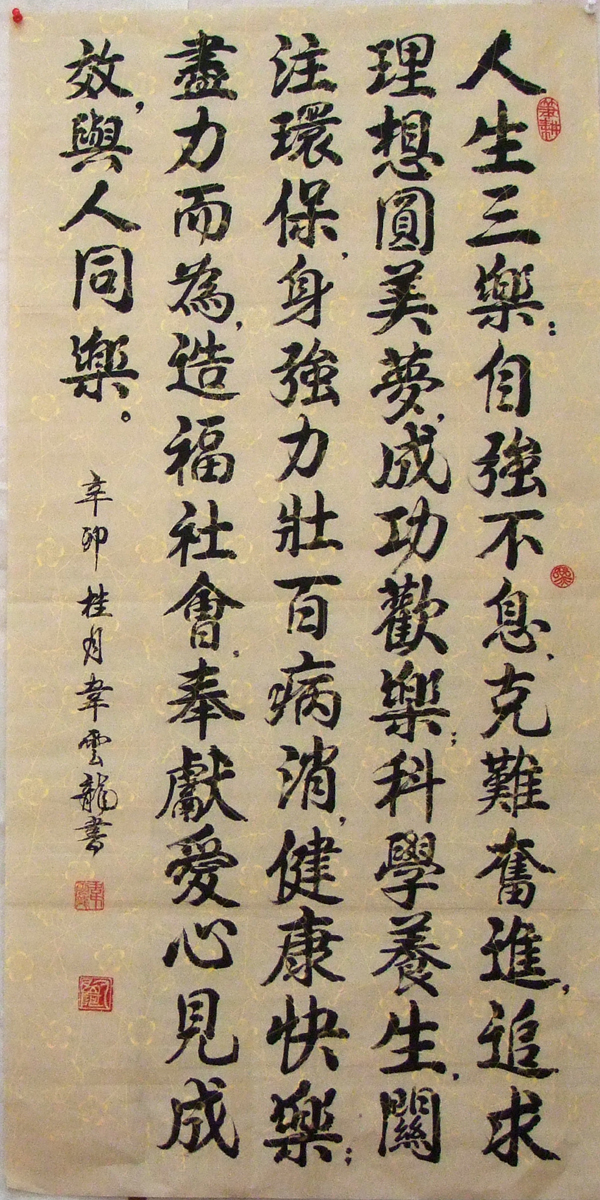 人生三樂：自強不息，克難奮進，追求
理想圓美夢，成功歡樂；科學養生，關
注環保，身強力壯百病消，健康快樂；
盡力而為，造福社會。奉獻愛心見成
效，與人同樂。
辛卯桂月韋雲龍書